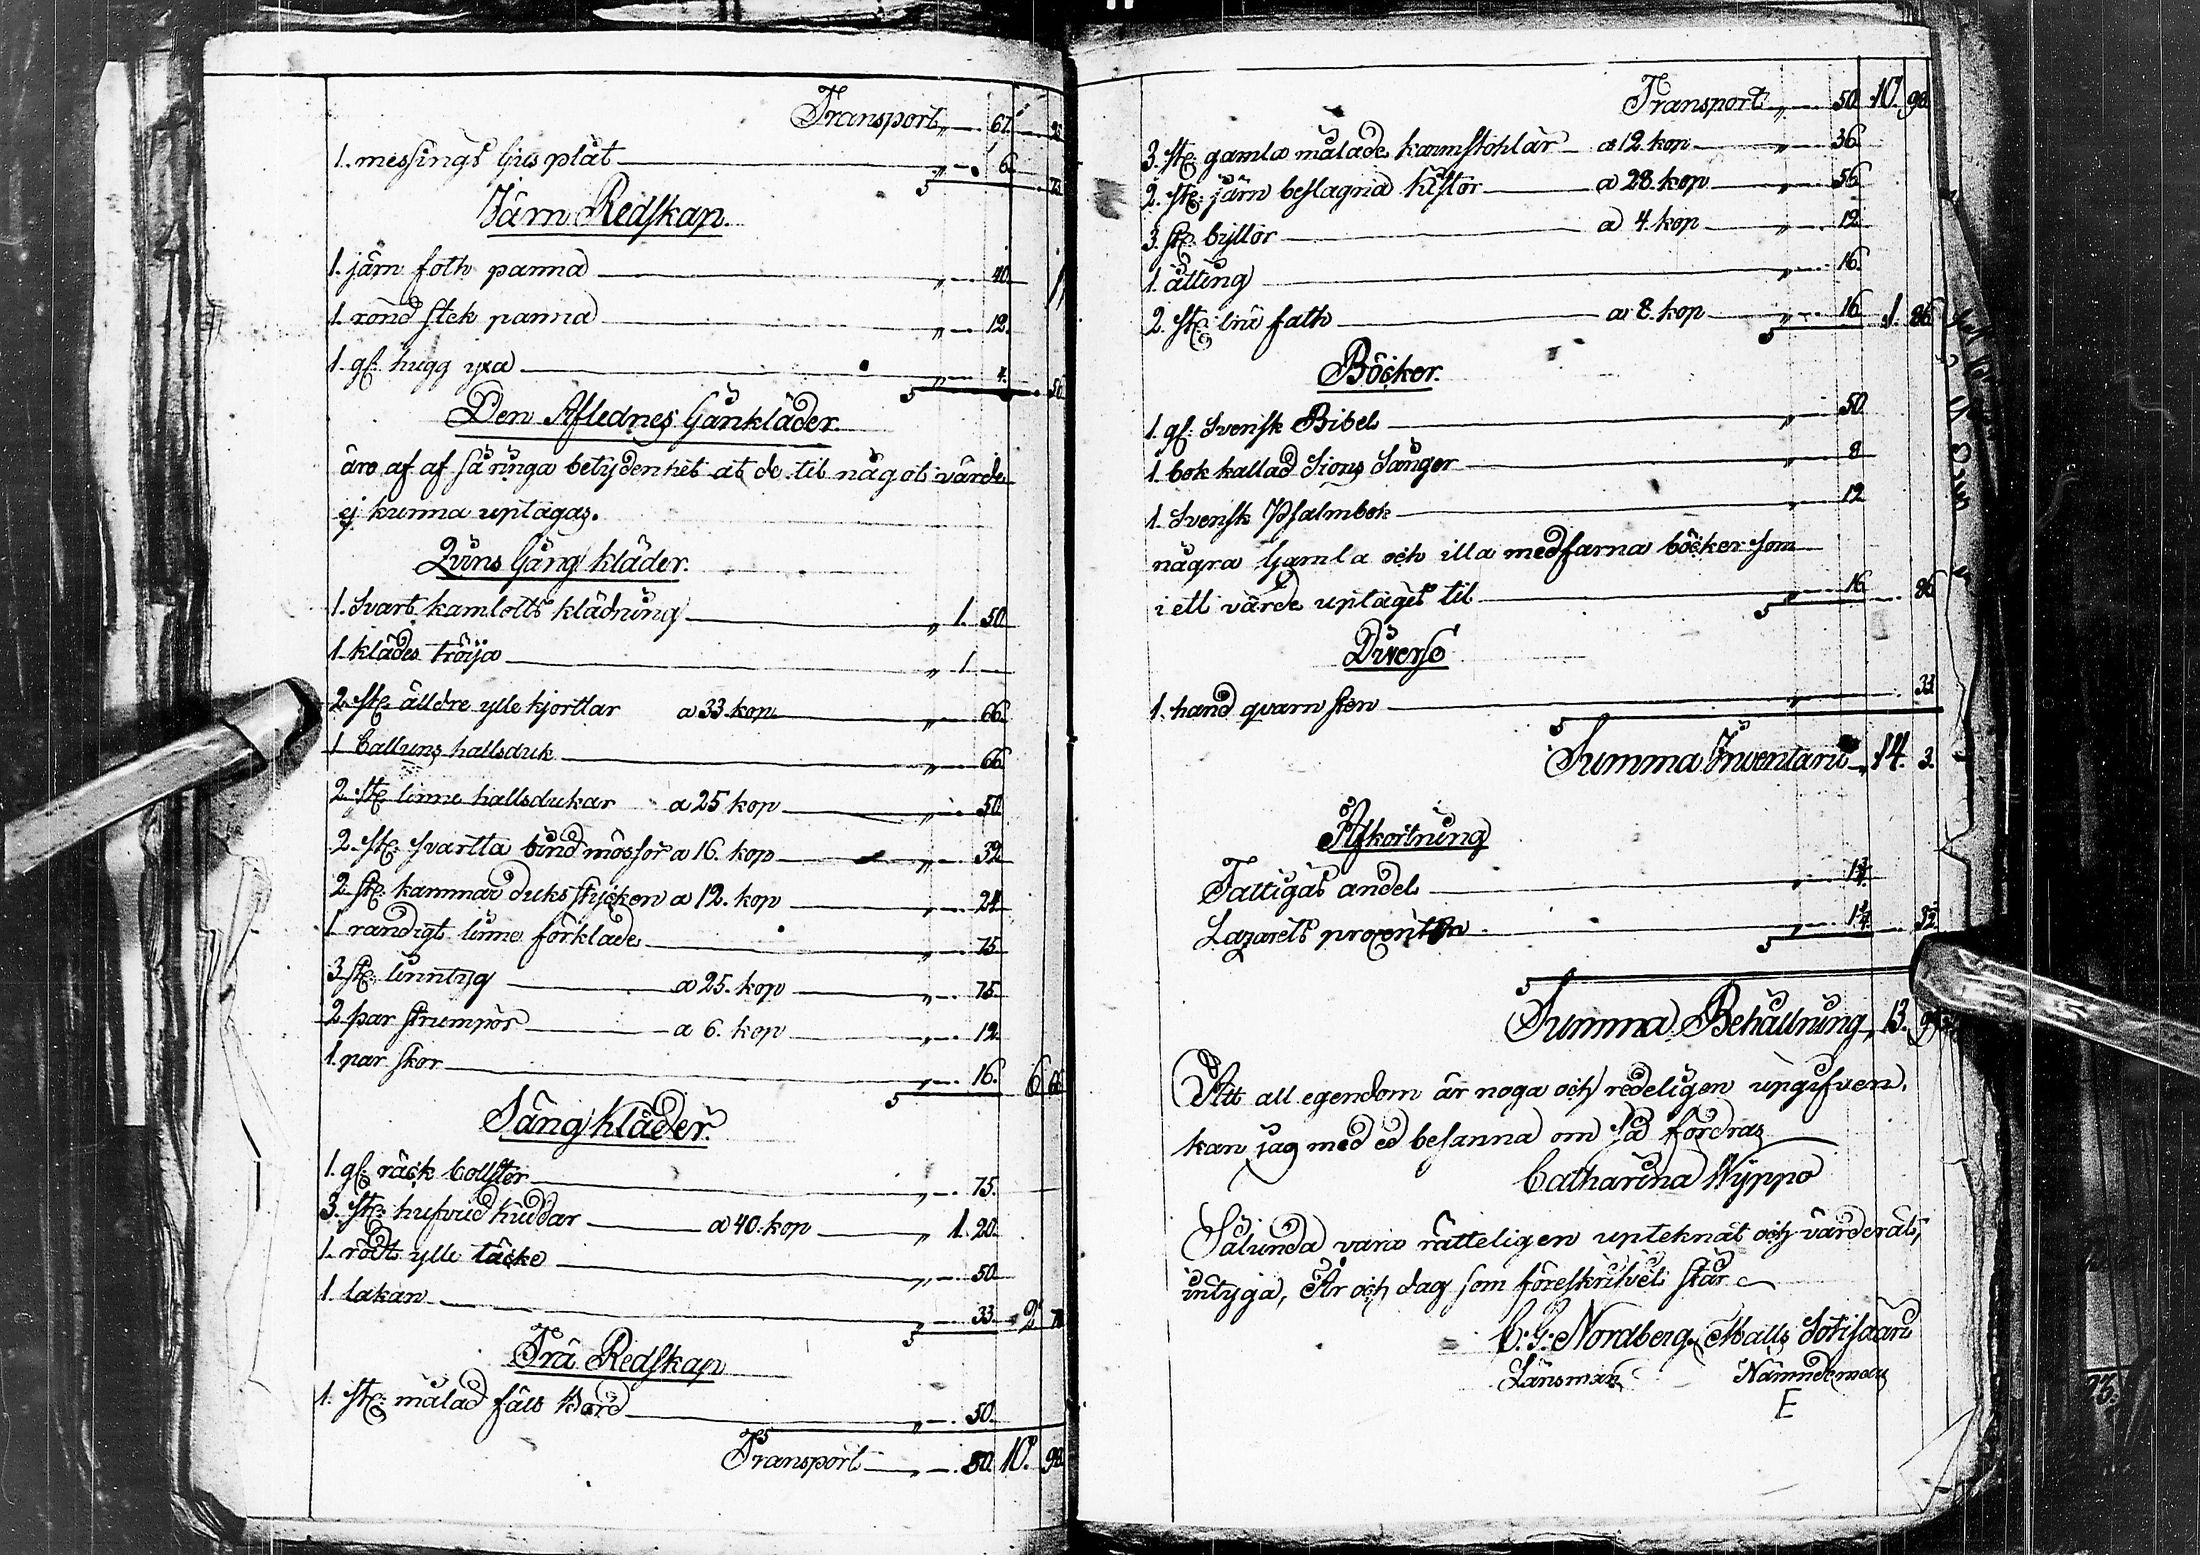 Transport „ — 67.
1. messings ljus plåt „ — 6.
Järn Redskap.
1. järn foth panna „ — 40.
1. rond stek panna „ — 12.
1. gl: hugg yxa „ — 4.
Den Aflednes Gånkläder
äro af af så ringa betydenhet at de til något värde
ej kunna uptagas.
Qvins Gång kläder.
1. Svart kamlotts klädning „ 1. 50
1. klädes tröija „ 1 —
2. st: älldre ylle kjortlar a 33 kop „ — 66.
1 Calluns hallsduk „ — 66.
2. st: linne hallsdukar a 25 kop „ — 50.
2. st: svartta bind mössor a 16. kop „ — 32
2 st: kammar duks stycken a 12. kop „ — 24
1 randigt linne förkläde „ — 75.
3 st: linntyg a 25. kop „ — 75.
2 par strumpor a 6. kop „ — 12.
1. par skor „ — 16. 6 66
Säng kläder.
1. gl: räck bollster „ — 75.
3. st: hufvud kuddar a 40. kop „ 1. 20.
1. rödt ylle täcke „ — 50
1. lakan „ — 33. 2 78
Trä Redskap
1. st: målad fäll bord „ — 50.
Transport „ — 50. 10. 90
Transport „ — 50. 10. 90.
3. st: gamla målade karmstohlar a 12. kop „ — 36
2. st: järn beslagna kistor a 28. kop „ — 56
3. st: byttor a 4. kop „ — 12
1. åtting „ — 16.
2. st: trä fath a 8. kop „ — 16 1. 86
Böcker.
1. gl: Svensk Bibel „ — 50.
1. bok kallad Sions Sånger „ 8
1. Svensk Psalmbok „ 12
några Gamla och illa medfarna böcker som
i ett värde uptagit til „ — 16 86
Diverse
1. hand qvarn sten „ 33
Summa Inventarii „ 14. 3.
Afkortning
Fattigas andel „ — 1¾
Lazarets procenten „ — 1¾ 3½
Summa Behållning, 13.
Att all egendom är noga och redeligen upgifven,
kan jag med ed besanna om så fordras
Catharina Nyppo
Sålunda vara rätteligen upteknat och värderat,
intyga, År och dag som föreskrifvet står
C: G: Nordberg Matts Sotisaari
Länsman Nämndeman
E